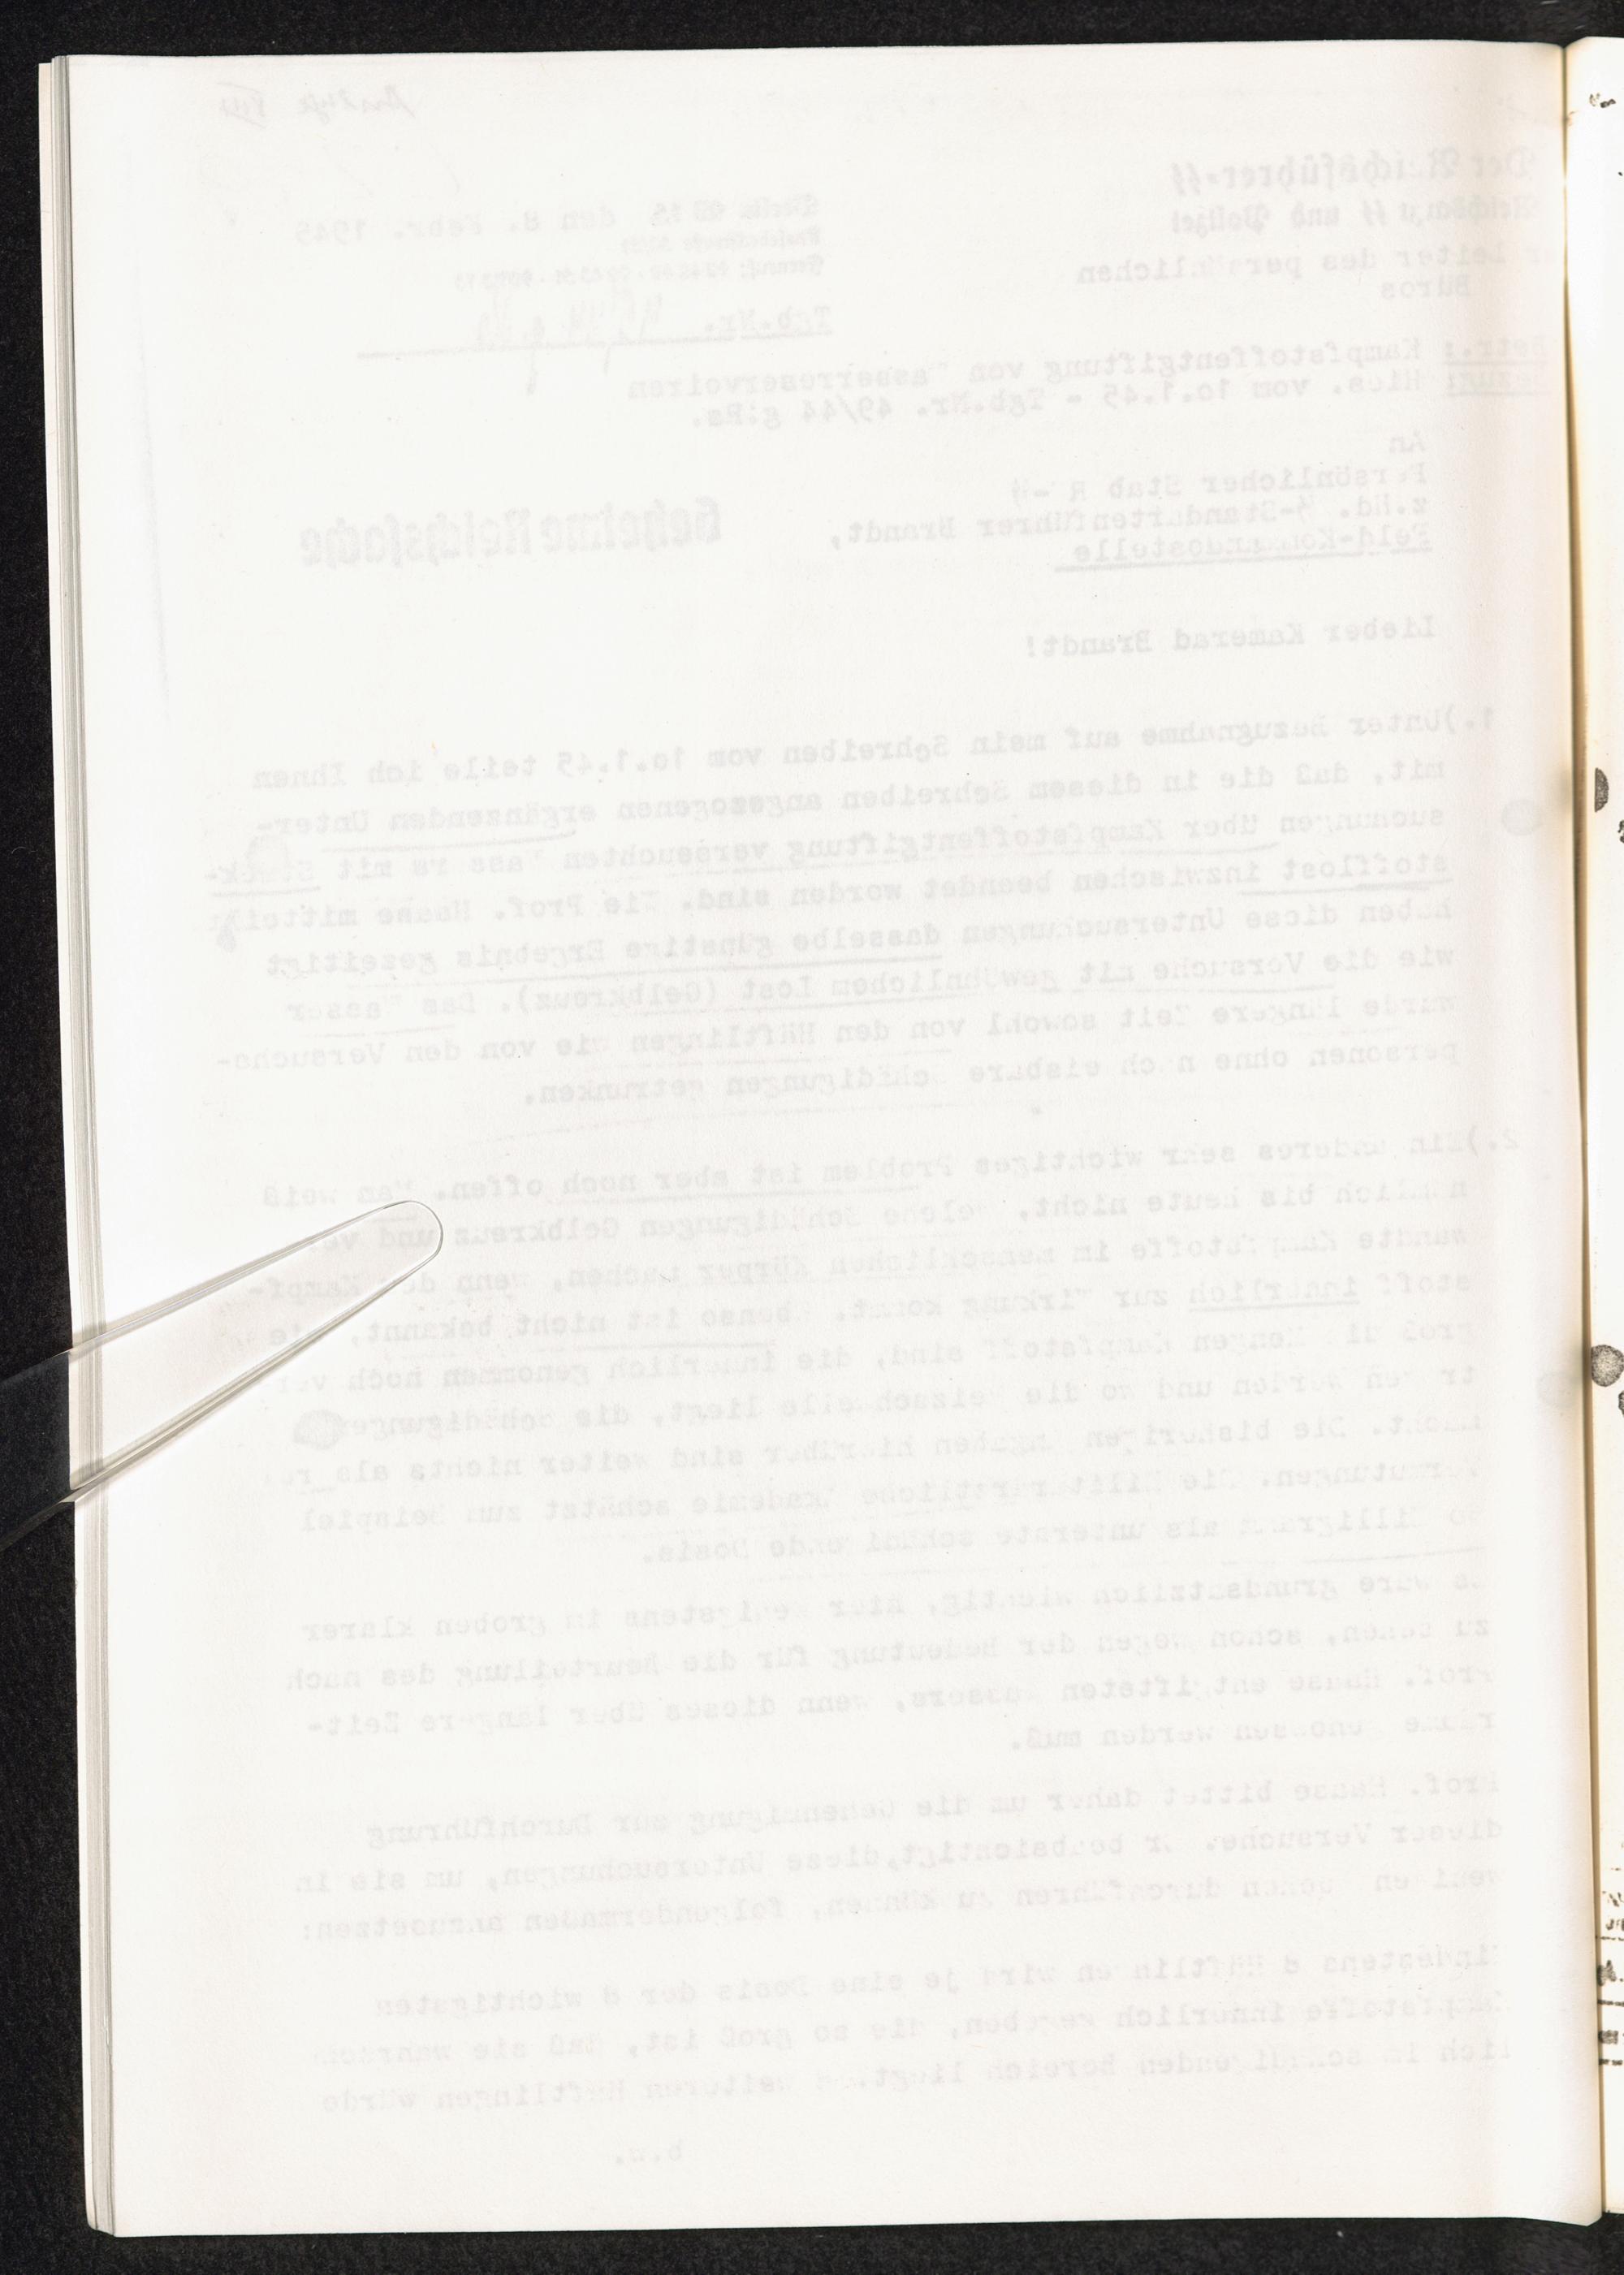 Der Reichsführer-SS
Reichsarzt SS und Polizei
Der Leiter des persönlichen
Büros
den 8. Febr. 1945
Tgb.Nr.
Betr.: Kampfstoffentgiftung von Wasserreservoiren
Bezug: Hies. vom 10.1.45 - Tgb.Nr. 49/44 g.Rs.
An
Persönlicher Stab R -SS
z.Hd. SS-Standartenführer Brandt,
Feld-Kommandostelle
Geheime Reichssache
Lieber Kamerad Brandt!
1.)Unter Bezugnahme auf mein Schreiben vom 10.1.45 teile ich Ihnen
mit, daß die in diesem Schreiben angezogenen ergänzenden Unter-
suchungen über Kampfstoffentgiftung verseuchten Wassers mit Stick-
stofflost inzwischen beendet worden sind. Wie Prof. Haase mitteilt
haben diese Untersuchungen dasselbe günstige Ergebnis gezeitigt
wie die Versuche mit gewöhnlichem Lost (Gelbkreuz). Das Wasser
wurde längere Zeit sowohl von den Häftlingen wie von den Versuchs-
personen ohne nachweisbare Schädigungen getrunken.
2.)Ein anderes sehr wichtiges Problem ist aber noch offen. Man weiß
nämlich bis heute nicht, welche Schädigungen Gelbkreuz und ver-
wandte Kampfstoffe im menschlichen Körper machen, wenn der Kampf-
stoff innerlich zur Wirkung kommt. Ebenso ist nicht bekannt, wie
groß die Mengen Kampfstoff sind, die innerlich genommen noch ver-
tragen werden und wo die Reizschwelle liegt, die Schädigungen
macht. Die bisherigen Angaben hierüber sind weiter nichts als
Vermutungen. Die Militärärztliche Akademie schätzt zum Beispiel
Milligramm als unterste schädigende Dosis.
Es wäre grundsätzlich wichtig, hier wenigstens im groben klarer
zu sehen, schon wegen der Bedeutung für die Beurteilung des nach
Prof. Haase entgifteten Wassers, wenn dieses über längere Zeit-
räume genossen werden muß.
Prof. Haase bittet daher um die Genehmigung zur Durchführung
dieser Versuche. Er beabsichtigt, diese Untersuchungen, um sie in
wenigen Wochen durchführen zu können, folgendermaßen anzusetzen:
Mindestens 8 Häftlingen wird je eine Dosis der 8 wichtigsten
Kampfstoffe innerlich gegeben, die so groß ist, daß sie wahrschein-
lich im schädigenden Bereich liegt. weiteren Häftlingen würde
b.w.